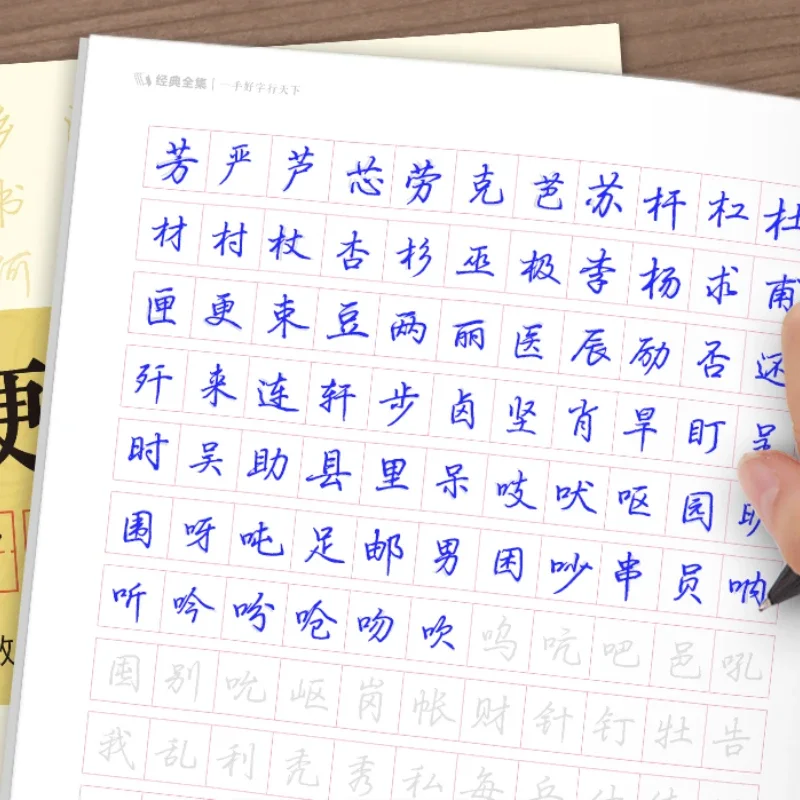 经典全集 | 一手好字行天下
芳严芦芯劳克芭苏杆杠杜
材村杖杏杉巫极李杨求甫
匣更束豆两丽医辰励否还
歼来连轩步卤坚肖旱盯呈
时吴助县里呆吱吠呕园
围呀吨足邮男困吵串员呐
听吟吩呛吻吹呜吭吧邑吼
囤别吮岖岗帐财针钉牡告
我乱利秃秀私每兵